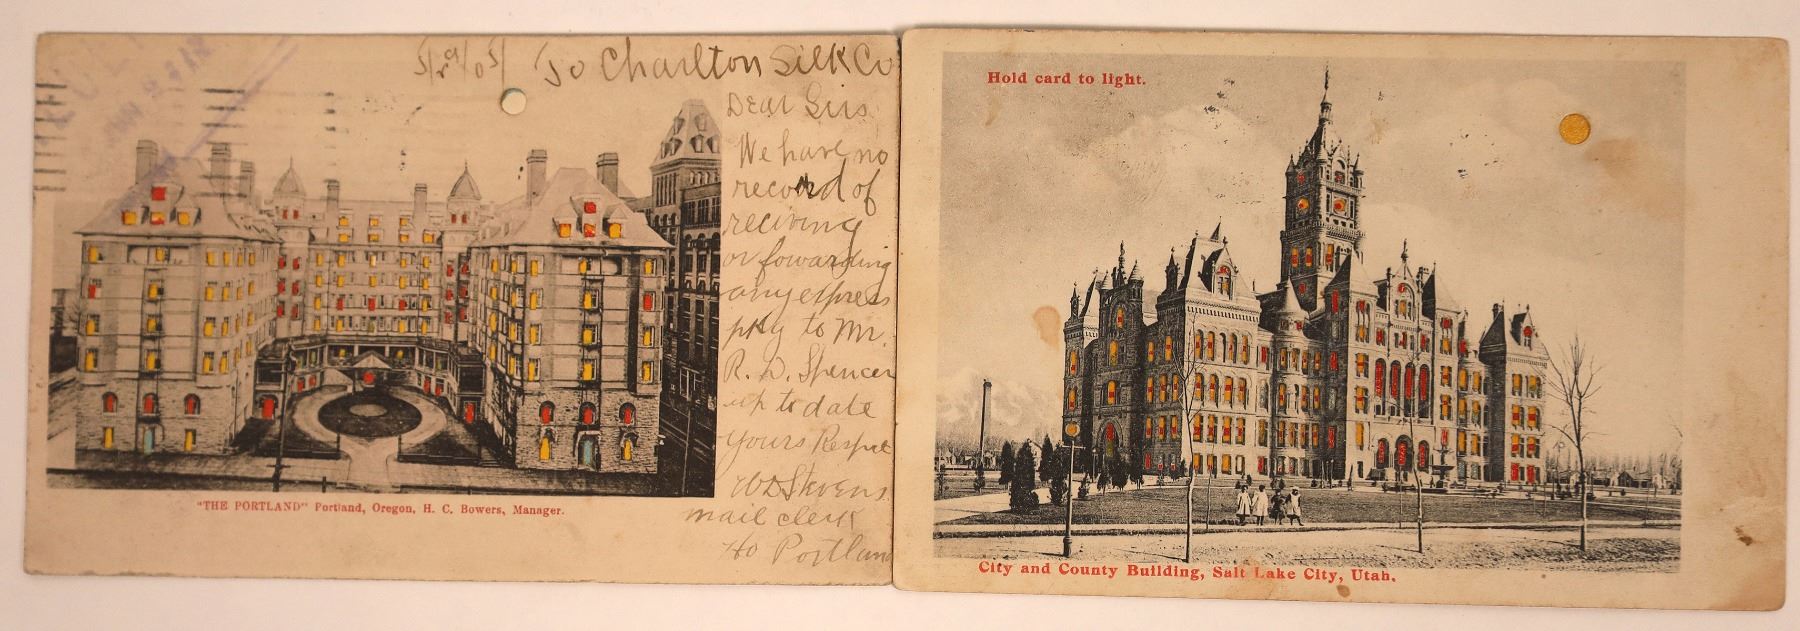 To Charlton Silk Co
Dear Sirs
We have no
record of
reciving
or fowarding
any express
pkg to Mr.
R. D. Spencer
up to date
Yours Respt
WD Stevens
mail clerk
Ho Portland
"THE PORTLAND" Portland, Oregon, H. C. Bowers, Manager.
Hold card to light.
City and County Building, Salt Lake City, Utah.